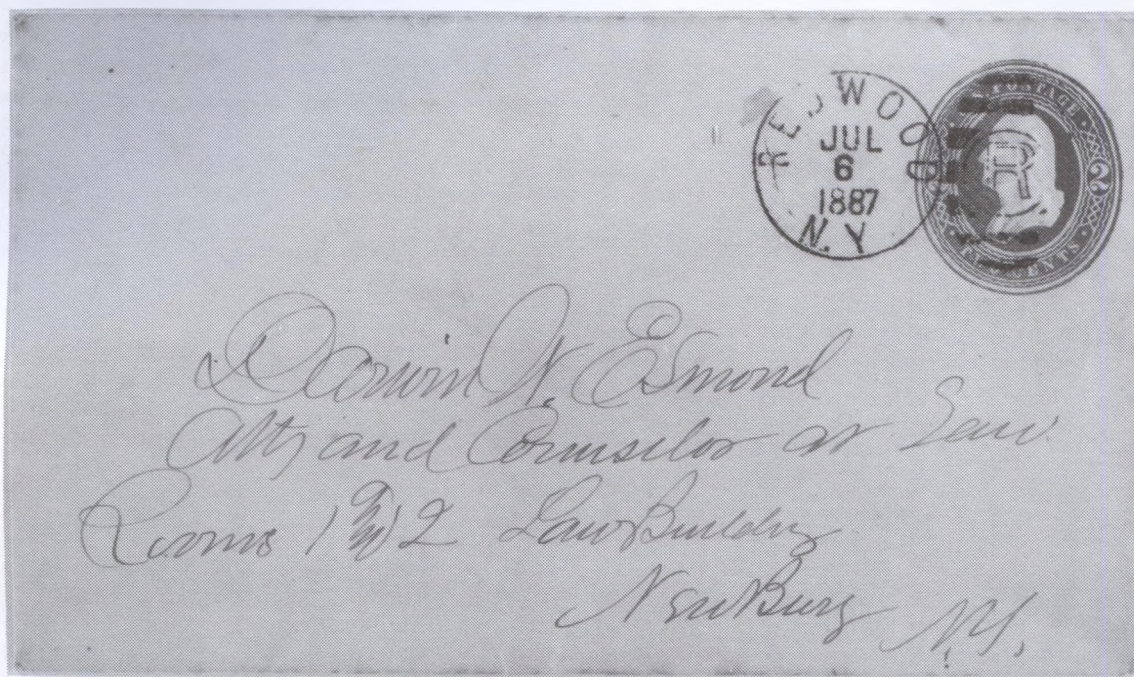 REDWOOD
JUL
6
1887
N.Y
U.S. POSTAGE
2
TWO CENTS
R
Darwin W. Esmond
Atty and Counselor at Law.
Rooms 1 & 2 Law Building
NewBurg N.Y.